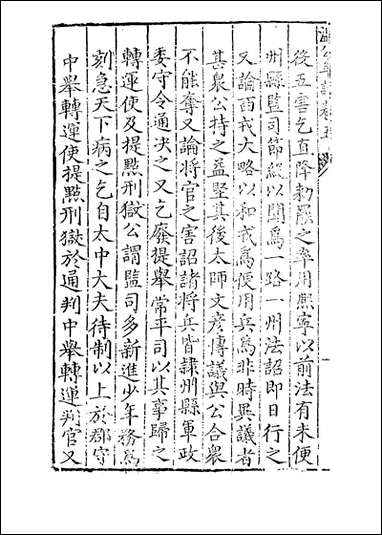 溫公年譜卷五
後五害乞直降勅罷之率用熙寧以前法有未便
州縣監司節級以聞爲一路一州法詔即日行之
又論西戎大略以和戎爲便用兵爲非時異議者
甚衆公持之益堅其後太師文彥博議與公合衆
不能奪又論將官之害詔諸將兵皆隷州縣軍政
委守令通決之又乞廢提舉常平司以其事歸之
轉運使及提點刑獄公謂監司多新進少年務爲
刻急天下病之乞自太中大夫待制以上於郡守
中舉轉運使提點刑獄於通判中舉轉運判官又